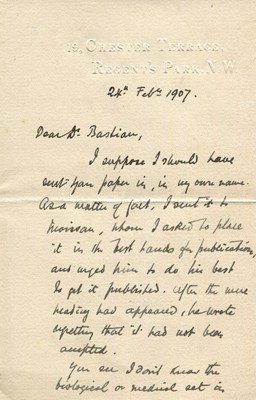 19, CHESTER TERRACE,
REGENT'S PARK. N.W.
24th Feby 1907.
Dear Dr Bastian,
I suppose I should have
sent your paper in, in my own name.
As a matter of fact, I sent it to
Moissan, whom I asked to place
it in the best hands for publication,
and urged him to do his best
to get it published. After the
reading had appeared, he wrote
regretting that it had not been
accepted.
You see I don't know the
biological or medical set in